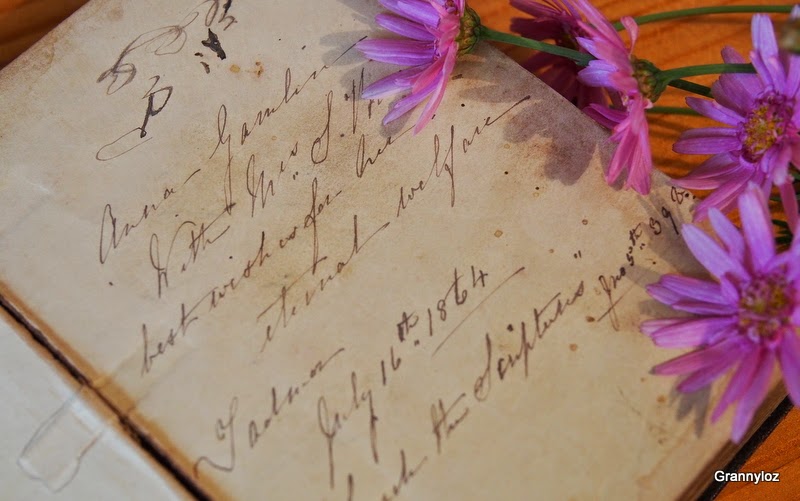 Anna Gamlin
With Mrs S.
best wishes for her
eternal welfare
Tadmor
July 16th 1864
the Scriptures" Jno 5th 39 v.
Grannyloz